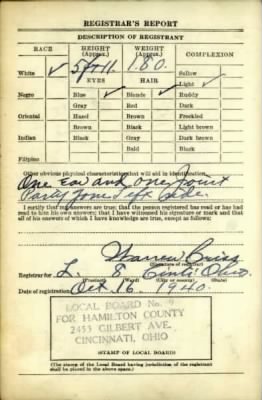 REGISTRAR'S REPORT
DESCRIPTION OF REGISTRANT
RACE HEIGHT (Approx.) WEIGHT (Approx.) COMPLEXION
White ✓ 5 ft 11. 180 Sallow
EYES HAIR Light ✓
Negro Blue ✓ Blonde ✓ Ruddy
Gray Red Dark
Oriental Hazel Brown Freckled
Brown Black Light brown
Indian Black Gray Dark brown
Bald Black
Filipino
Other obvious physical characteristics that will aid in identification
One Ear and one joint
Partly gone left side.
I certify that my answers are true; that the person registered has read or has had
read to him his own answers; that I have witnessed his signature or mark and that
all of his answers of which I have knowledge are true, except as follows:
Warren
(Signature of registrar)
Registrar for L. 8 Cinti Ohio.
(Precinct) (Ward) (City or county) (State)
Date of registration Oct 16. 1940.
LOCAL BOARD No. 9
FOR HAMILTON COUNTY
2453 GILBERT AVE.
CINCINNATI, OHIO
(STAMP OF LOCAL BOARD)
(The stamp of the Local Board having jurisdiction of the registrant
shall be placed in the above space.)